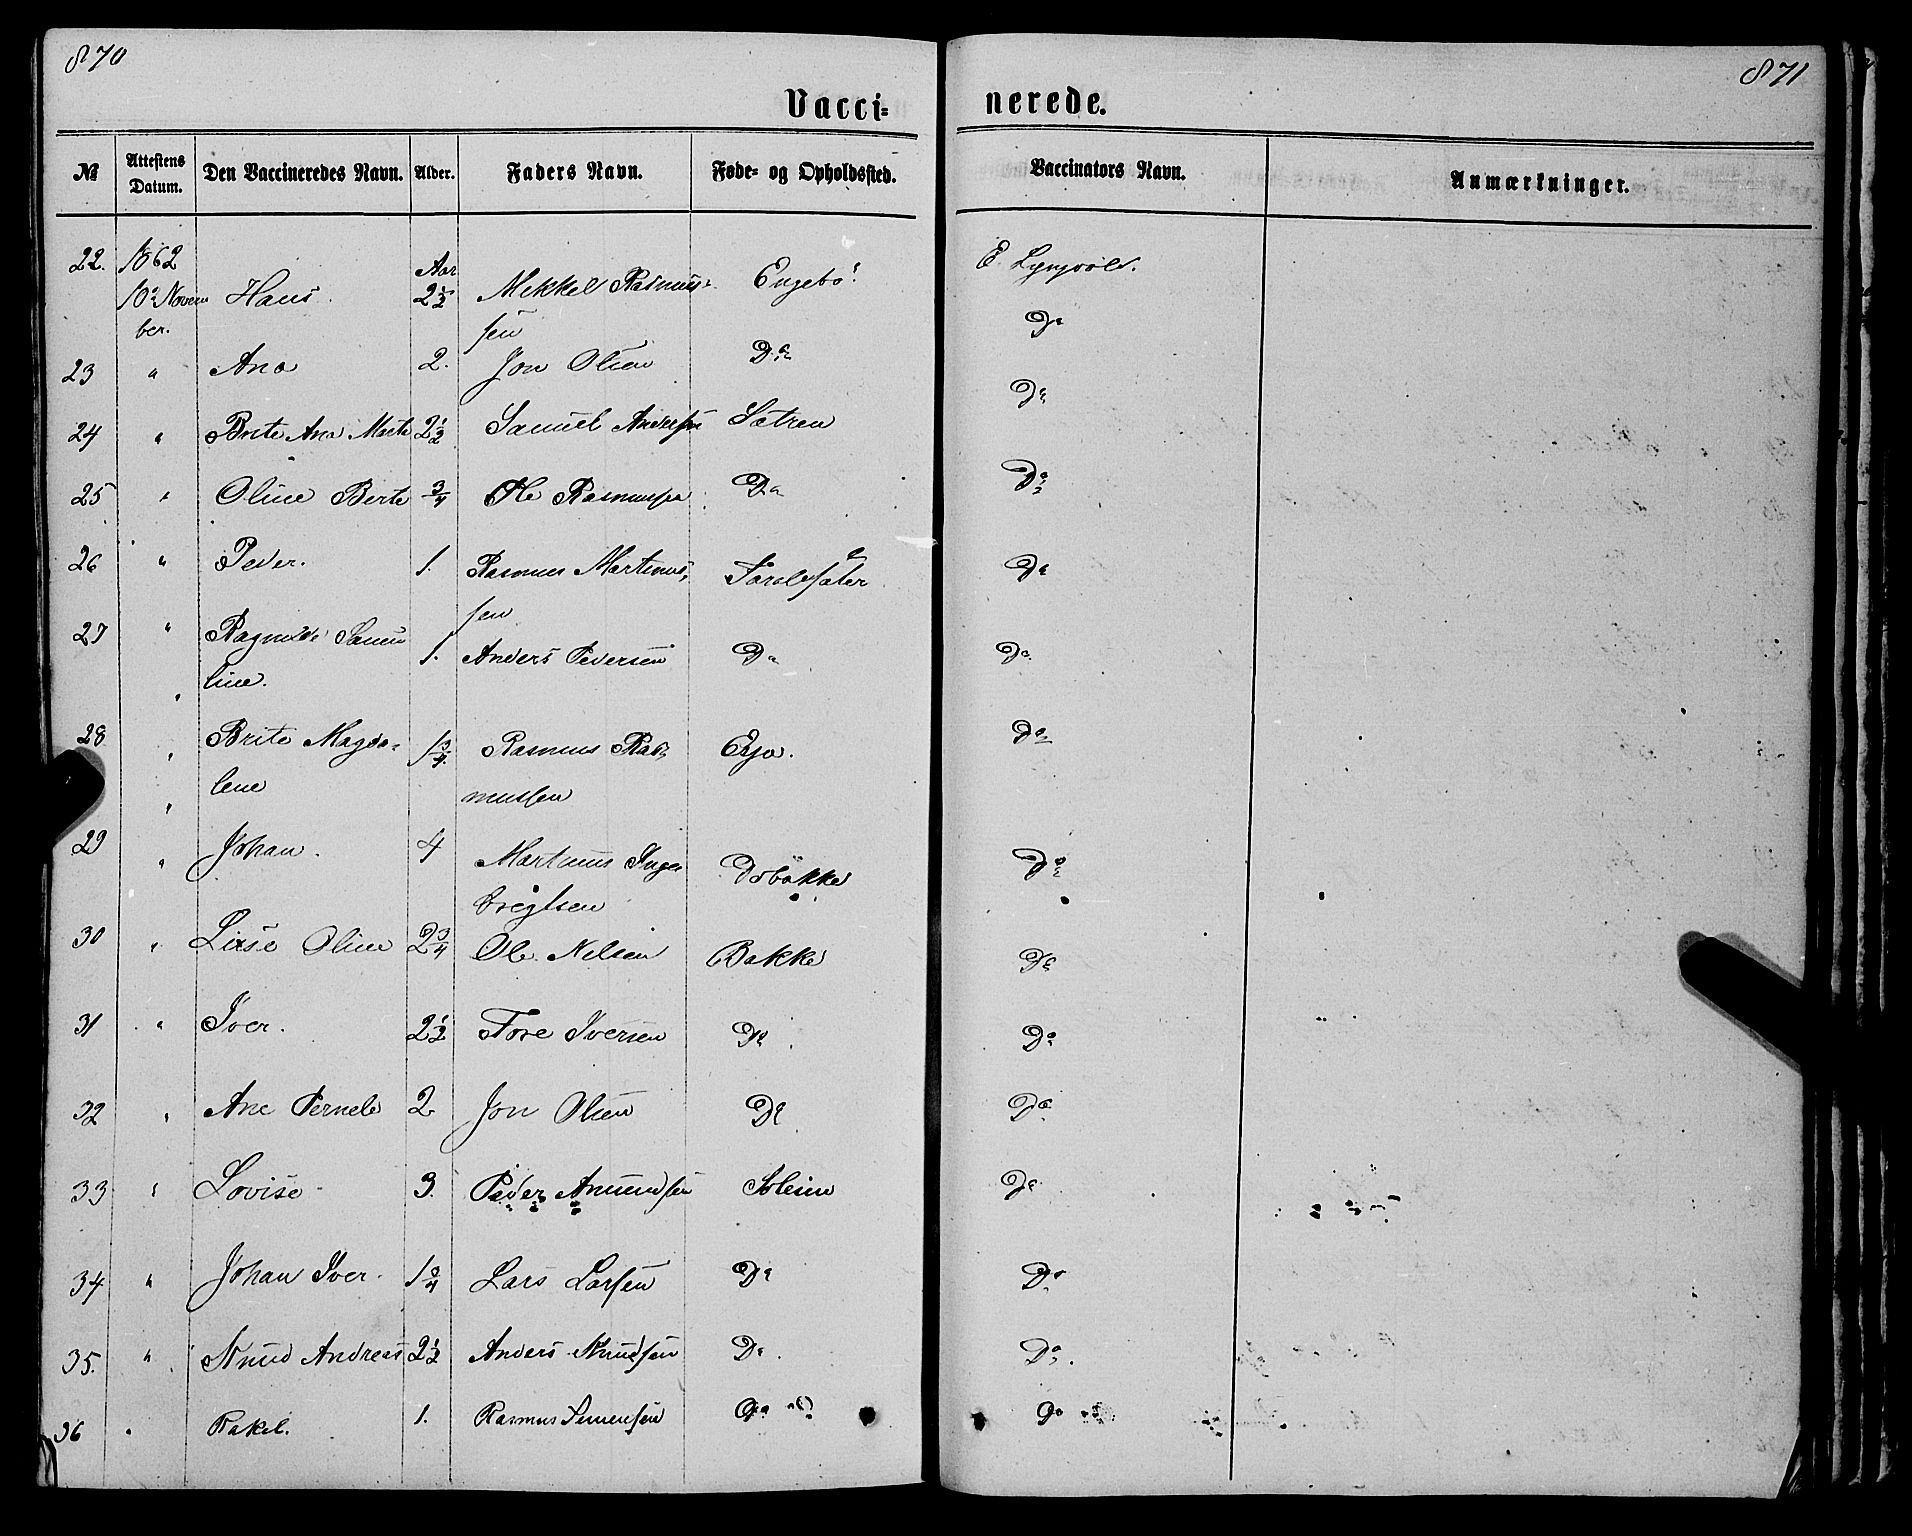 870
871
Vacci=
nerede.
№ Attestens Datum. Den Vaccineredes Navn. Alder. Faders Navn. Føde= og Opholdssted. Vaccinators Navn. Anmærkninger.
22. 1862 10de Novem Hans. Aar 2 1/2 Mikkel Rasmus= Engebø. E. Lyngvold.
ber. sen Do
23 " Ana 2. Jon Olsen Do Do
24 " Brite Ana Marte 2 1/2 Samuel Andersen Sætren Do
25 " Oline Berte 3/4 Ole Rasmussen Do
26 " Peder. 1. Rasmus Martinus= Do
sen
27 " Ragnilde 1. Anders Pedersen Do Do
line.
28 " Brite Magda= 1 3/4 Rasmus Ras= Do
lene mussen
29 " Johan. 4 Martinus Inge Do
brigtsen
30 " Lisse Oline 2 3/4 Ole Nelsen Bakke Do
31 " Iver. 2 1/2 Tore Iversen Do Do
32 " Ane Pernele 2 Jon Olsen Do Do
33 " Lovise 3. Peder Amundsen Soleim Do
34 " Johan Iver. 1 3/4 Lars Larsen Do Do
35. " Knud Andreas 2 1/2 Anders Knudsen Do Do.
36 " Rakel. 1. Rasmus Simensen Do Do